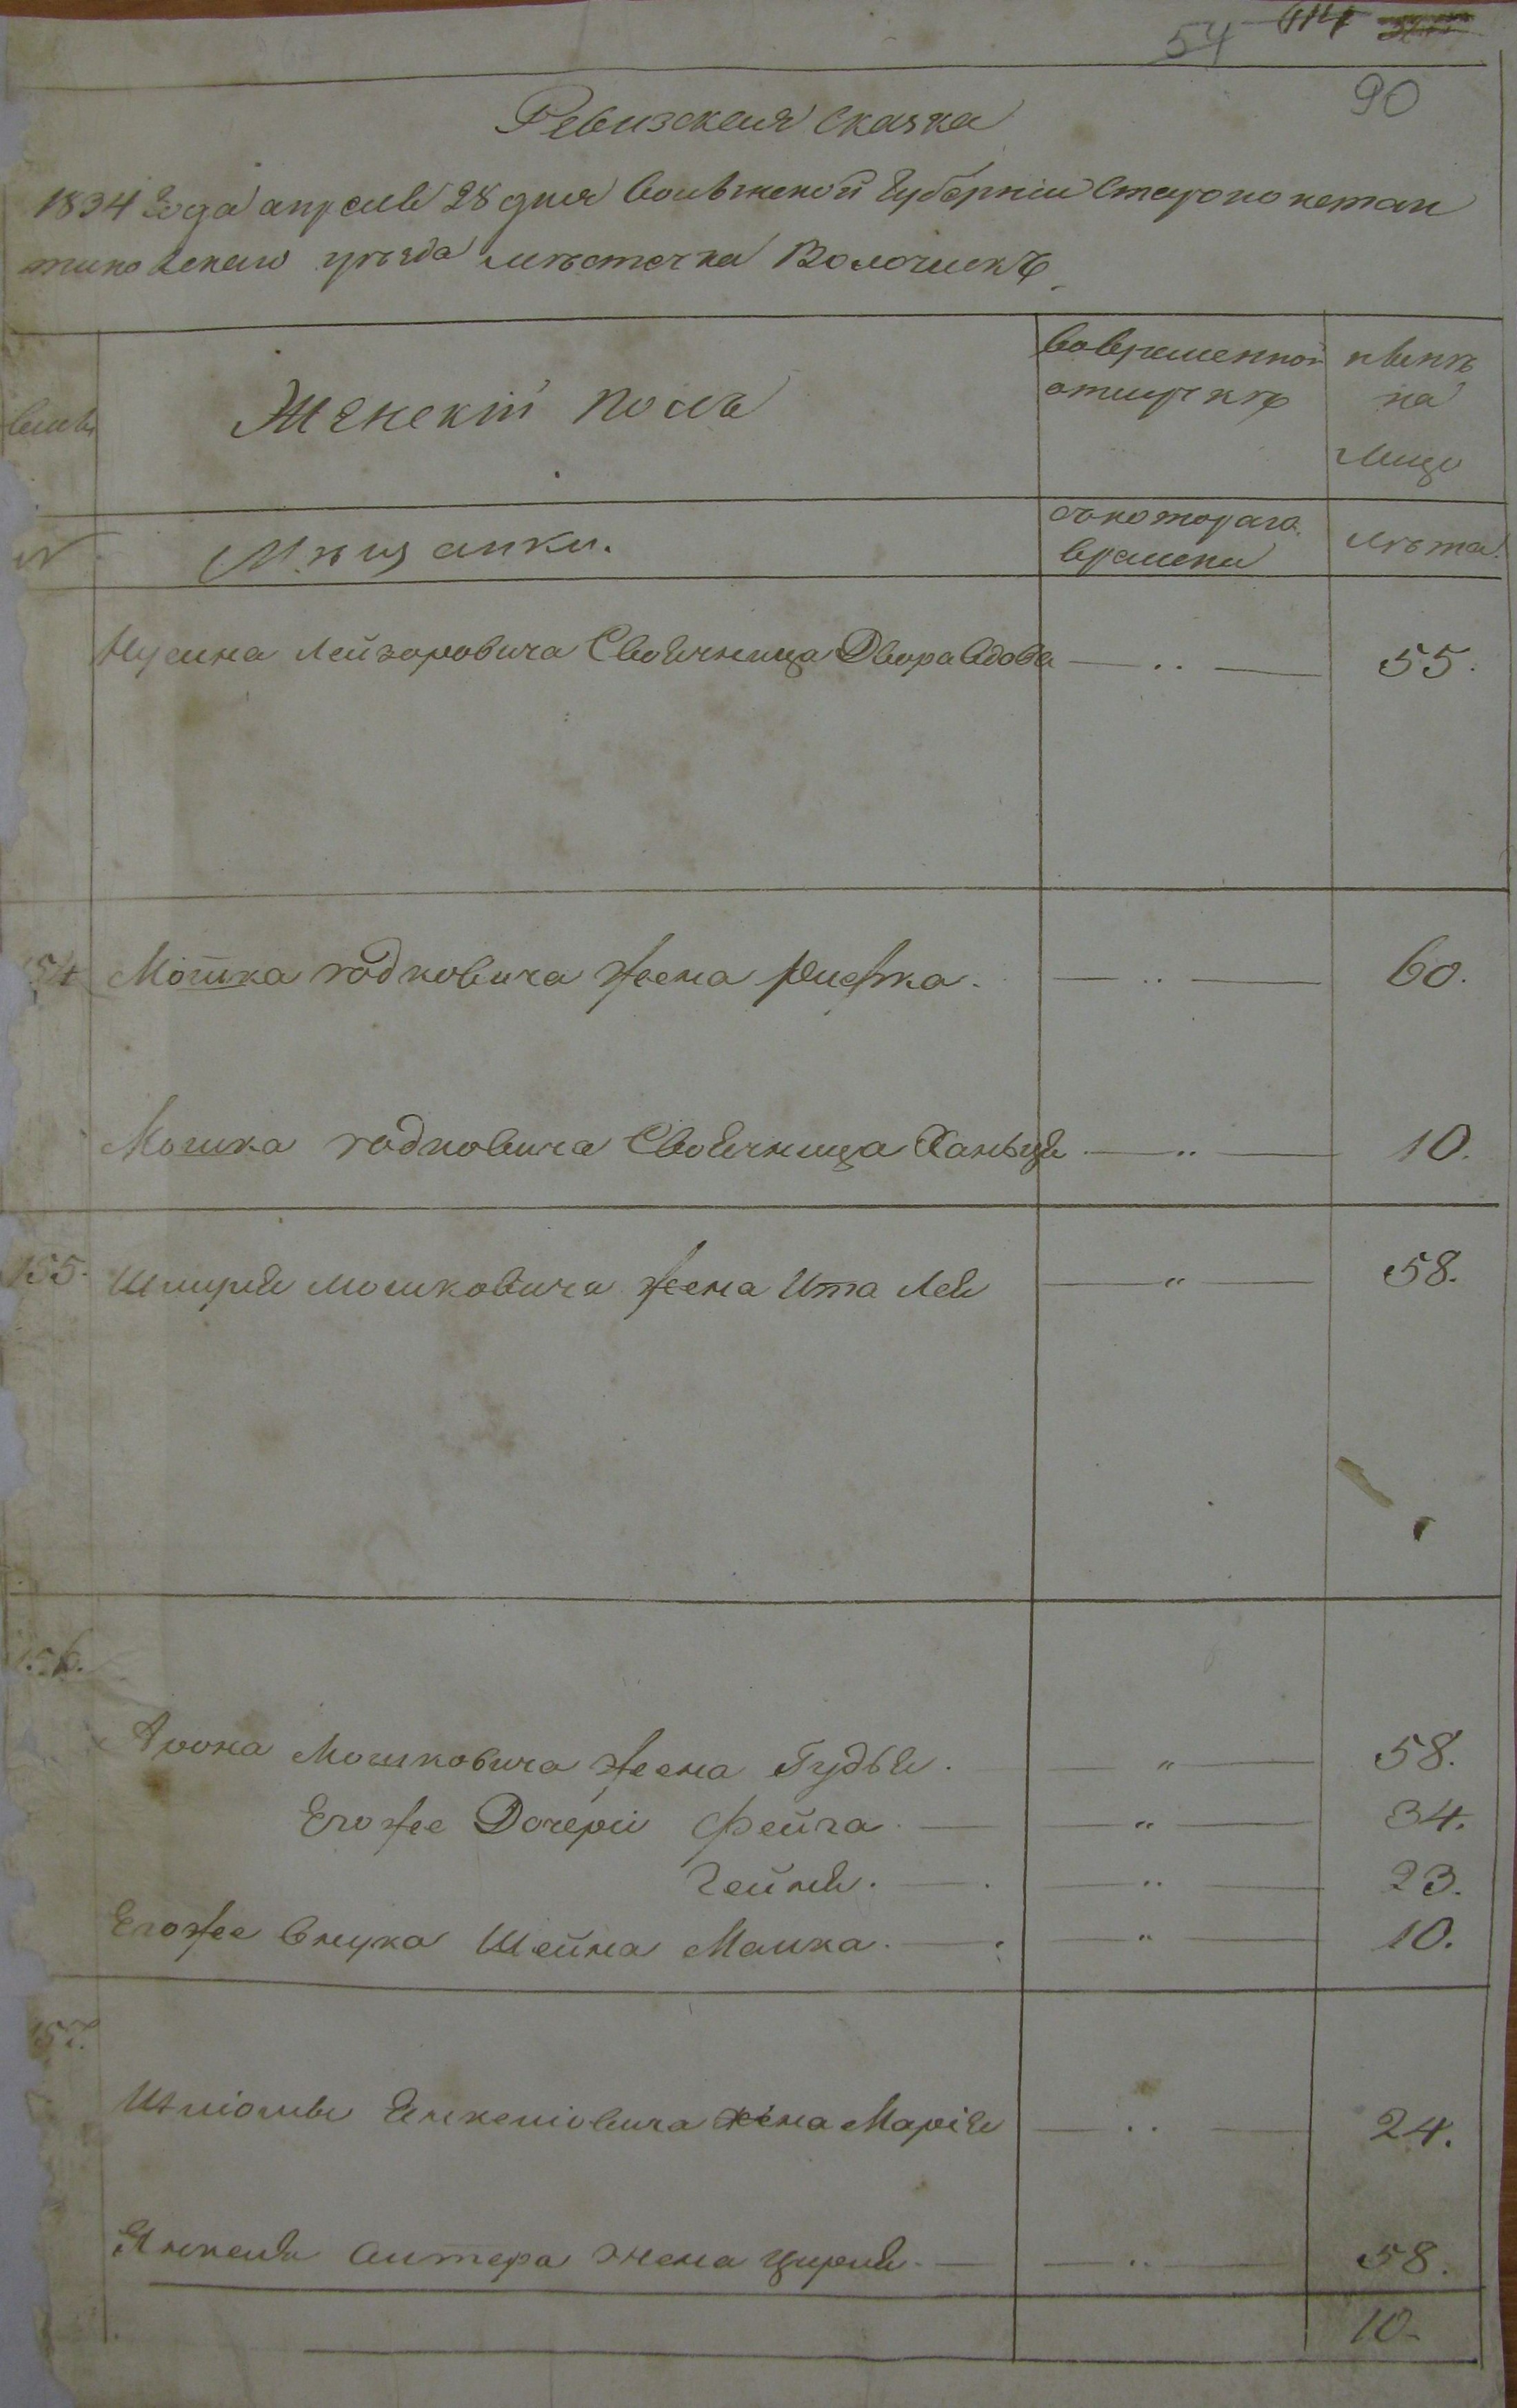 54 614
90
Ревизская Сказка
1834 года апреля 28 дня Волынской Губерніи Старокостан
тиновскаго уѣзда мѣстечка Волочискъ
Женскій полъ
Вовременной
отлучкѣ
нынѣ
на
лицо
№
Мѣщанки.
съкотораго
времени
лѣта.
Нусина Лейзоровича Своячница Двора вдова — .. — 55.
154 Мошка Юдковича жена Рифка. — .. — 60.
Мошка Юдковича Своячница Ханьця — .. — 10.
155. Шмуля Мошковича жена Ита Лея — " — 58.
156.
Арона Мошковича жена Гудья. — " — 58.
Егоже Дочери Фейга. — " — 34.
Гейня. — .. — 23.
Егоже внука Шейна Малка. — " — 10.
157.
Шліомы Янкеліовича жена Марія — .. — 24.
Янкеля Антера жена Цирля. — .. — 58.
10.